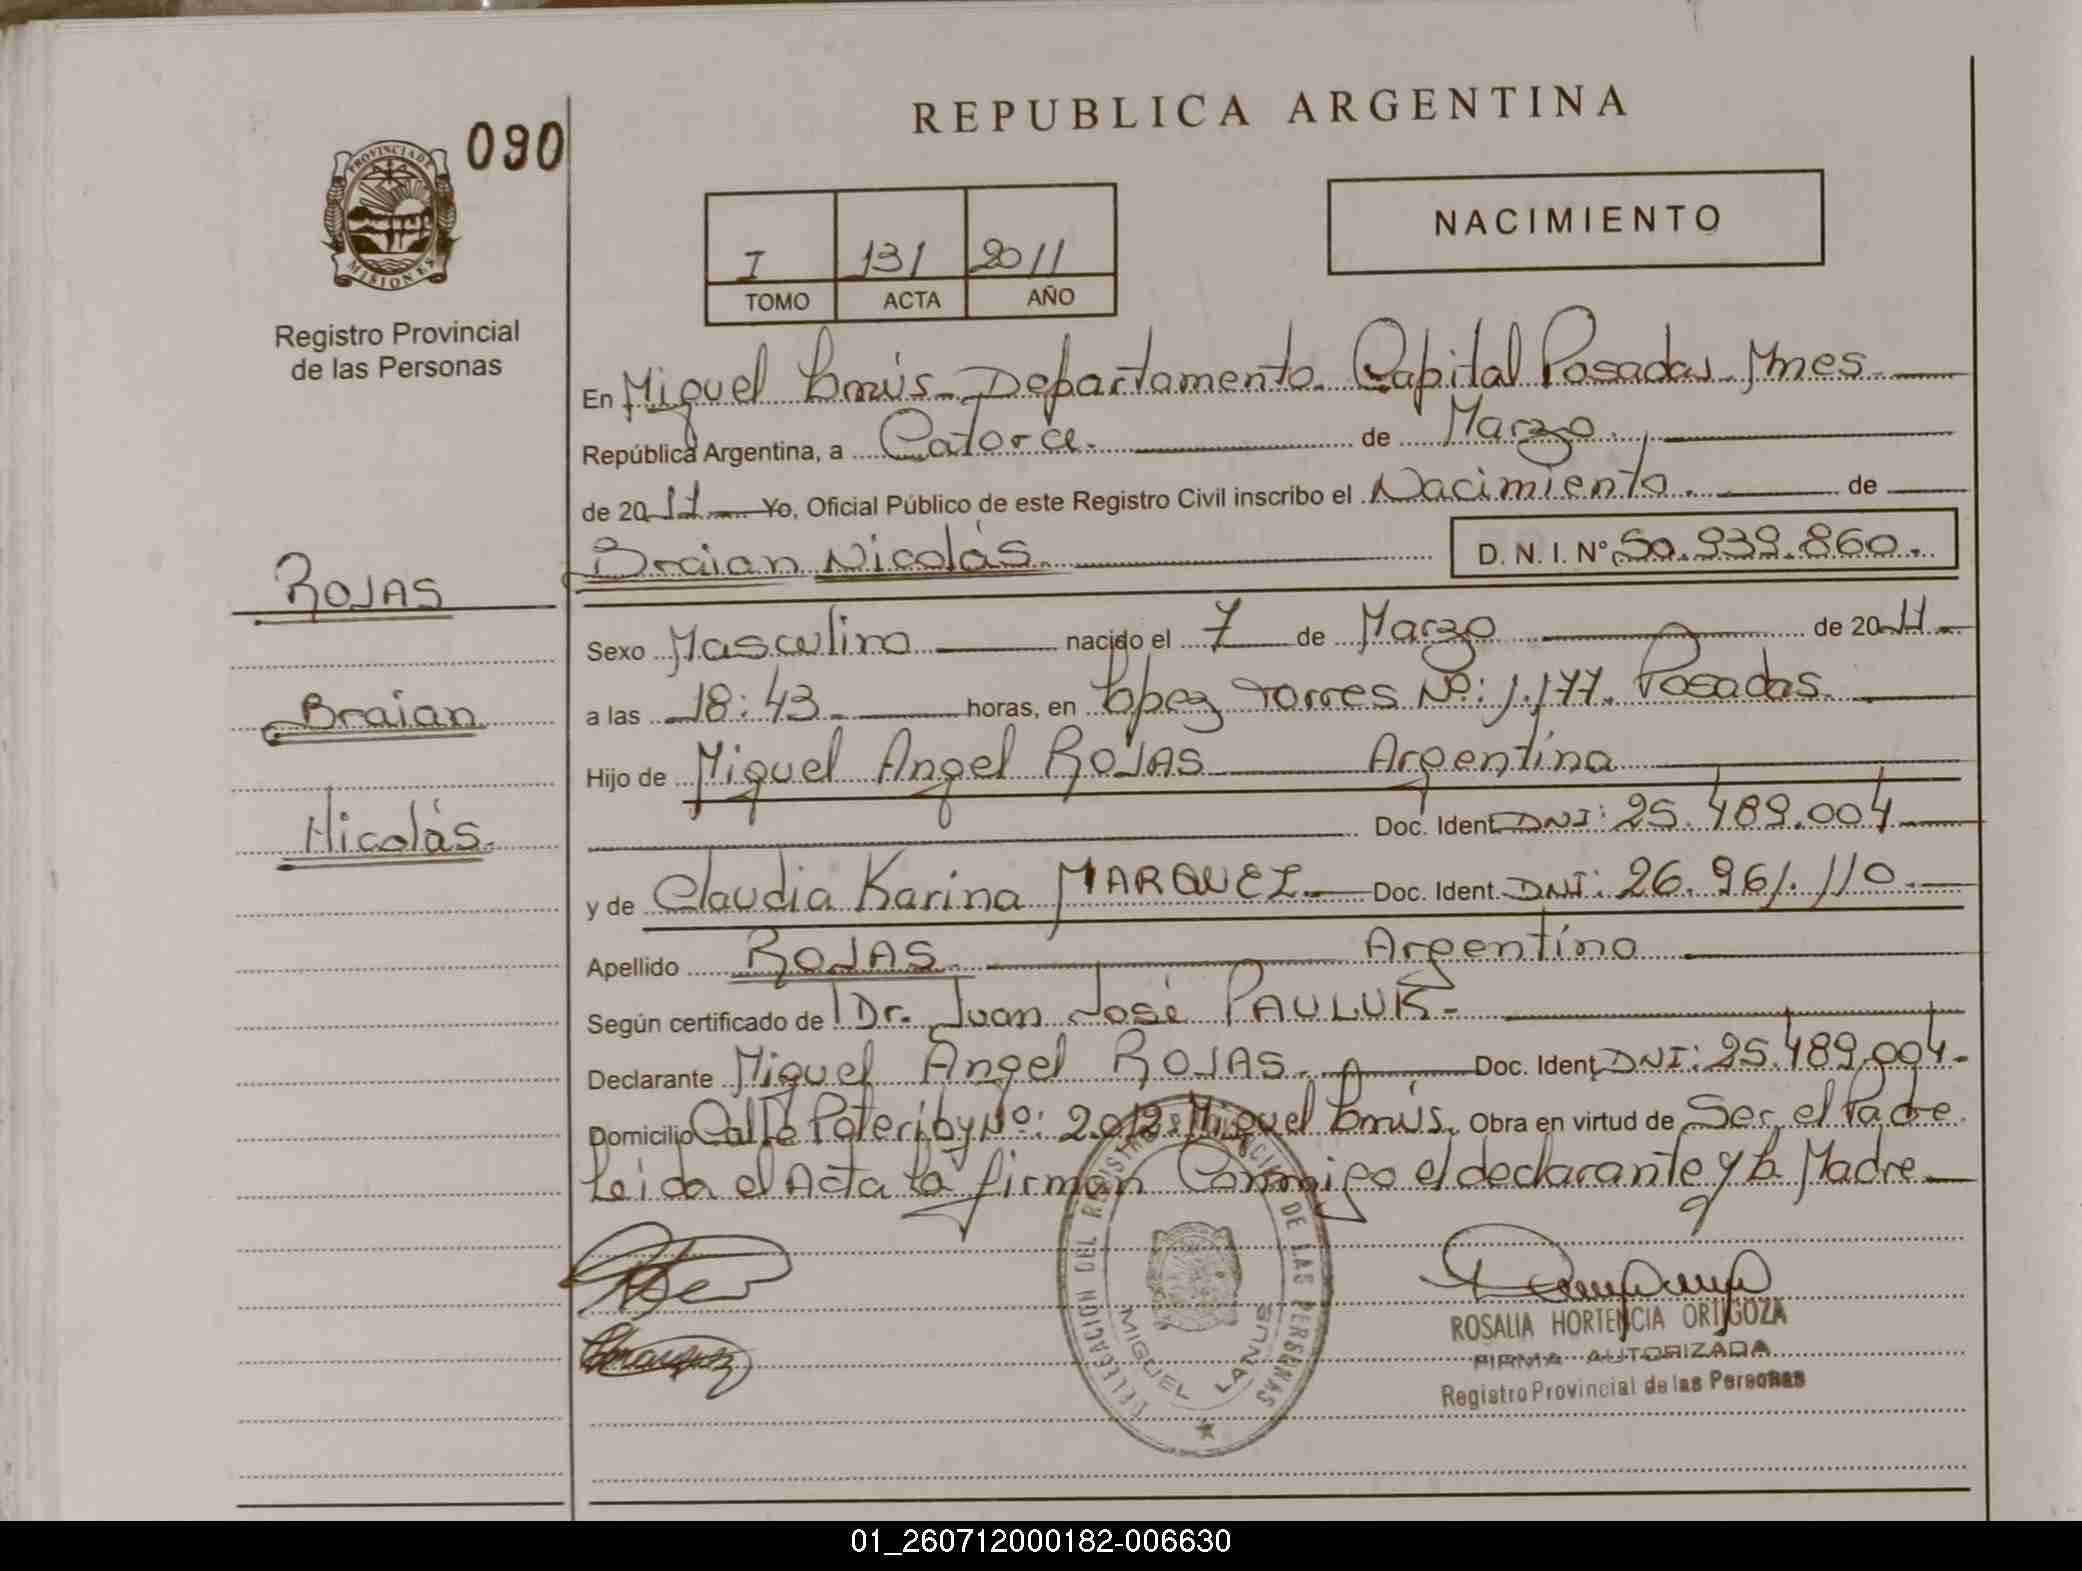 REPUBLICA ARGENTINA
090
PROVINCIA DE
MISIONES
Registro Provincial
de las Personas
NACIMIENTO
I 131 2011
TOMO ACTA AÑO
En Miguel Lanús - Departamento Capital Posadas Mnes.
República Argentina, a Catorce. de Marzo.
de 2011 Yo, Oficial Público de este Registro Civil inscribo el Nacimiento. de
Braian Nicolás D. N. I. Nº 50.939.860.
ROJAS
Braian
Nicolás.
Sexo Masculino nacido el 7 de Marzo de 2011.
a las 18:43. horas, en López Torres Nº: 1.177. Posadas.
Hijo de Miguel Angel ROJAS Argentina
Doc. Ident. DNI: 25.489.004
y de Claudia Karina MARQUEZ. Doc. Ident. DNI: 26.961.110.
Apellido ROJAS. Argentino
Según certificado de Dr. Juan José PAULUK-
Declarante Miguel Angel ROJAS. Doc. Ident. DNI: 25.489.004.
Domicilio Calle Nº: 2.012. Miguel Lanús. Obra en virtud de Ser el Padre.
Leida el Acta la firman Conmigo el declarante y la Madre
DELEGACION DEL REGISTRO PROVINCIAL DE LAS PERSONAS
MIGUEL LANUS
ROSALIA HORTENCIA ORIGOZA
FIRMA AUTORIZADA
Registro Provincial de las Personas
01_260712000182-006630